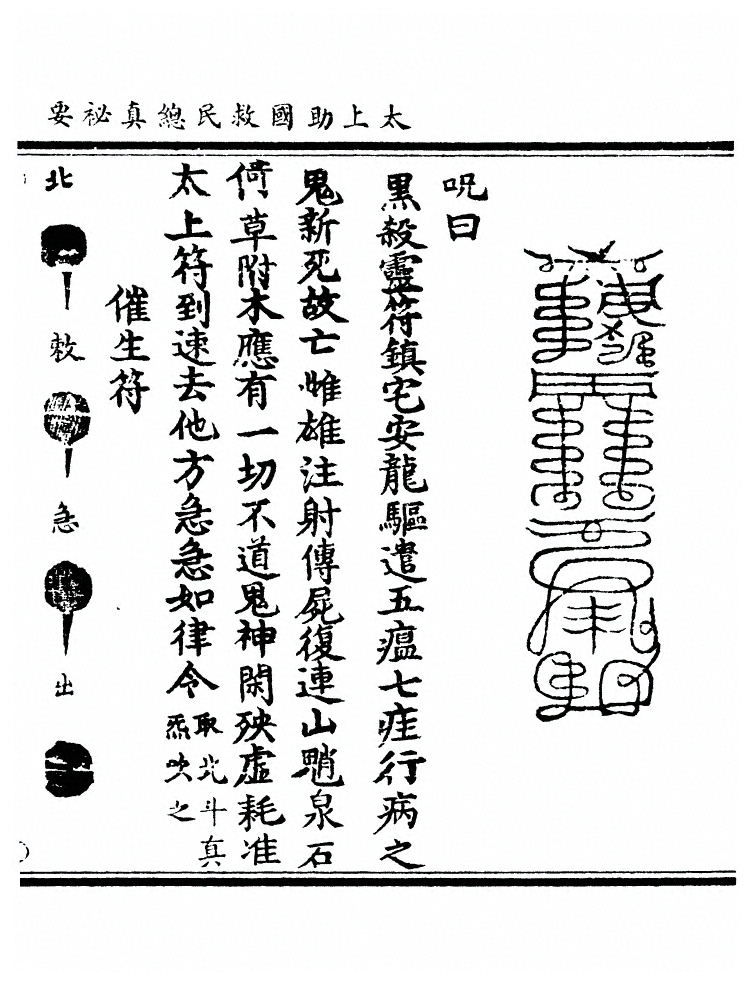 太上助國救民總真祕要
呪曰
黑殺靈符鎮宅安龍驅遣五瘟七疰行病之
鬼新死故亡雌雄注射傳屍復連山魈泉石
倚草附木應有一切不道鬼神閑殃虛耗准
太上符到速去他方急急如律令取北斗真炁吹之
催生符
北
敕
急
出